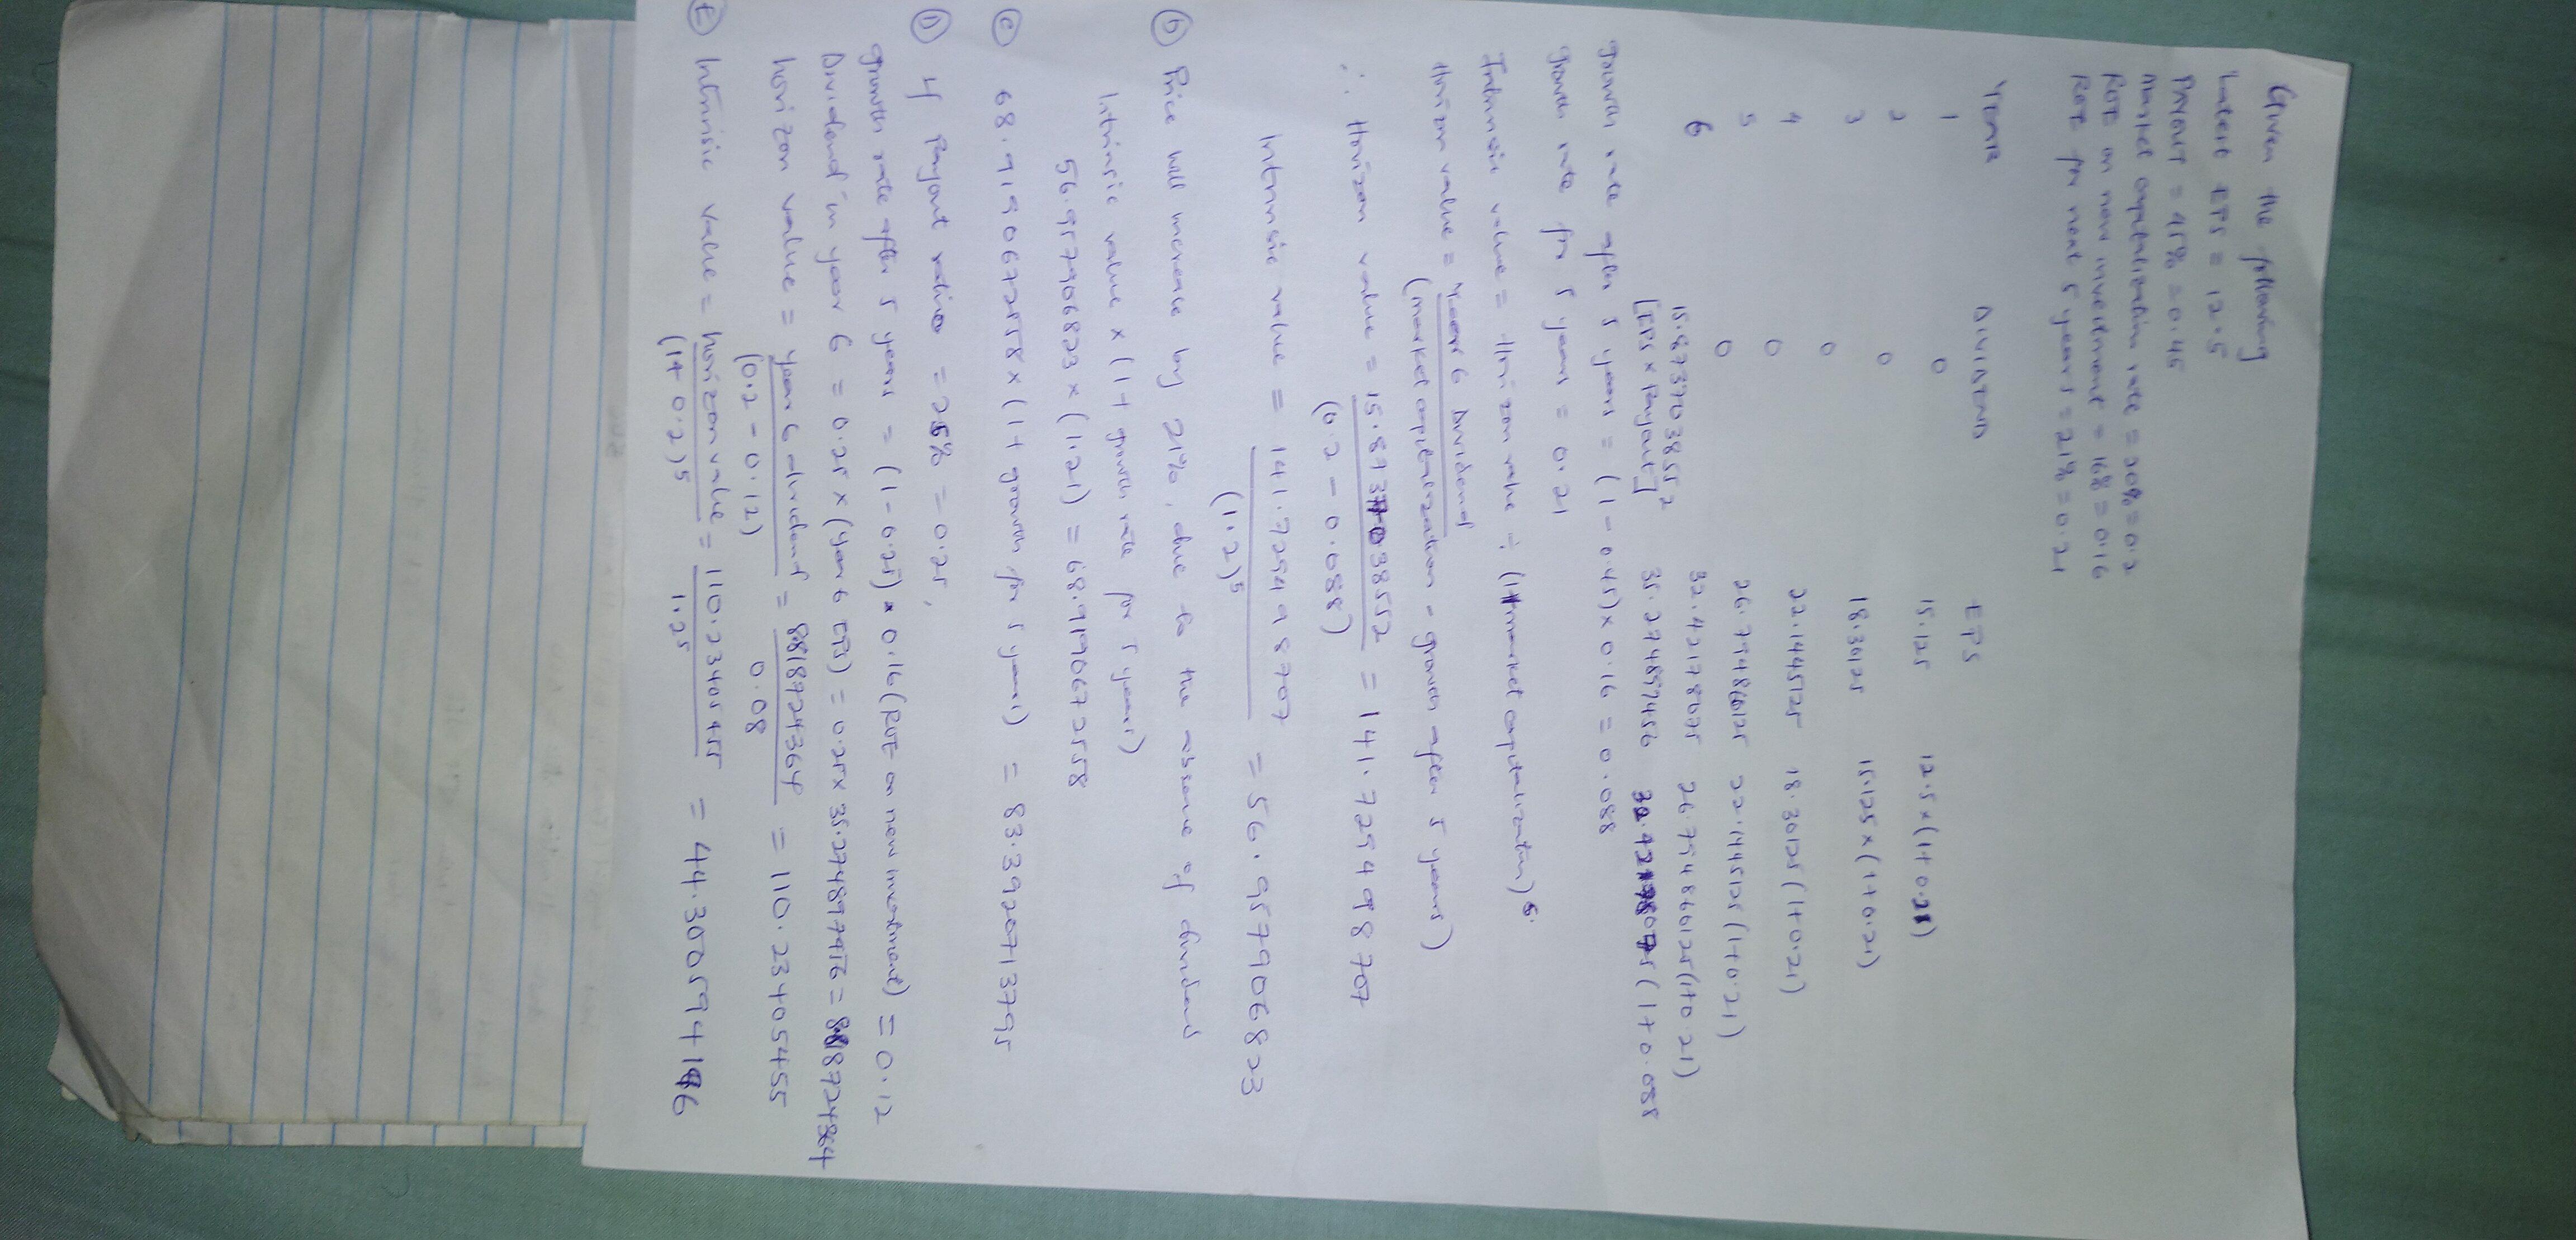 Given the following
Latest EPS = 12.5
PAYOUT = 45% = 0.45
Market capitalization rate = 20% = 0.2
ROE on new investment = 16% = 0.16
ROE for next 5 years = 21% = 0.21
YEAR DIVIDEND EPS
1 0 15.125 12.5 x (1+0.21)
2 0 18.30125 15.125 x (1+0.21)
3 0 22.1445125 18.30125 (1+0.21)
4 0 26.794860125 22.1445125 (1+0.21)
5 0 32.42178075 26.7948660125 (1+0.21)
6 15.8737038552 35.274897456 32.42178075 (1+0.088
[EPS x Payout]
growth rate after 5 years = (1-0.45) x 0.16 = 0.088
growth rate for 5 years = 0.21
Intrinsic value = Horizon value ÷ (1+market capitalization)⁵
Horizon value = year 6 Dividend
(market capitalization - growth after 5 years)
∴ Horizon value = 15.8737038552 = 141.7294998707
(0.2 - 0.088)
Intrinsic value = 141.7294998707 = 56.9579906823
(1.2)⁵
(b) Price will increase by 21%, due to the absence of dividend
Intrinsic value x (1+growth rate for 5 years)
56.9579906823 x (1.21) = 68.9190672558
(c) 68.9190672558 x (1+growth for 5 years) = 83.3920713795
(D) If Payout ratio = 25% = 0.25,
growth rate after 5 years = (1-0.25) x 0.16 (ROE on new investment) = 0.12
Dividend in year 6 = 0.25 x (year 6 EPS) = 0.25 x 35.2748977456 = 8.8187244364
horizon value = year 6 dividend = 8.8187244364 = 110.234054455
(0.2 - 0.12) 0.08
(E) Intrinsic value = horizon value = 110.2340545455 = 44.3005944196
(1+0.2)⁵ 1.2⁵